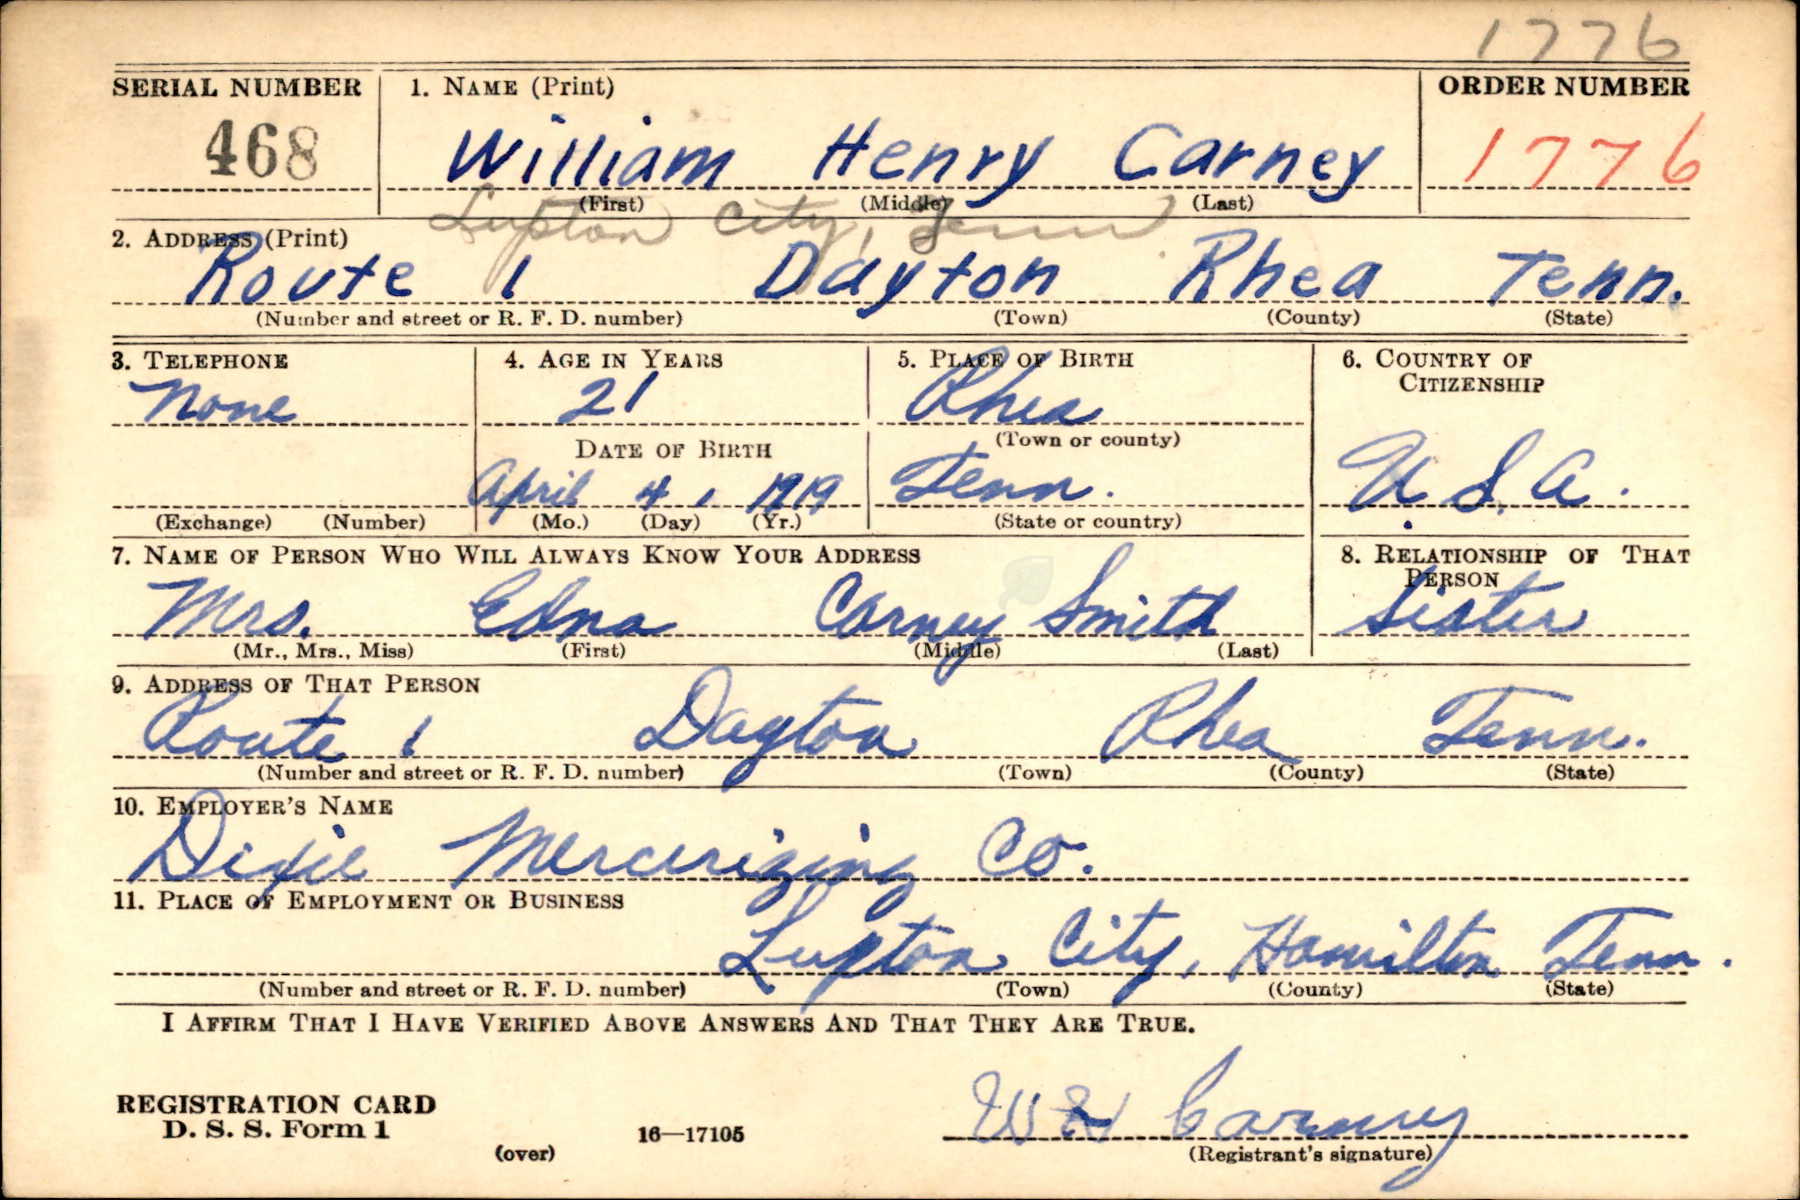 1776
SERIAL NUMBER 1. NAME (Print) ORDER NUMBER
468 William Henry Carney 1776
(First) (Middle) (Last)
Lupton City, Tenn
2. ADDRESS (Print)
Route 1 Dayton Rhea Tenn.
(Number and street or R. F. D. number) (Town) (County) (State)
3. TELEPHONE 4. AGE IN YEARS 5. PLACE OF BIRTH 6. COUNTRY OF CITIZENSHIP
None 21 Rhea
DATE OF BIRTH (Town or county)
April 4, 1919 Tenn. U.S.A.
(Exchange) (Number) (Mo.) (Day) (Yr.) (State or country)
7. NAME OF PERSON WHO WILL ALWAYS KNOW YOUR ADDRESS 8. RELATIONSHIP OF THAT PERSON
Mrs. Edna Carney Smith Sister
(Mr., Mrs., Miss) (First) (Middle) (Last)
9. ADDRESS OF THAT PERSON
Route 1 Dayton Rhea Tenn.
(Number and street or R. F. D. number) (Town) (County) (State)
10. EMPLOYER'S NAME
Dixie Mercerizing Co.
11. PLACE OF EMPLOYMENT OR BUSINESS
Lupton City, Hamilton Tenn.
(Number and street or R. F. D. number) (Town) (County) (State)
I AFFIRM THAT I HAVE VERIFIED ABOVE ANSWERS AND THAT THEY ARE TRUE.
REGISTRATION CARD
D. S. S. Form 1
(over) 16—17105
W H Carney
(Registrant's signature)